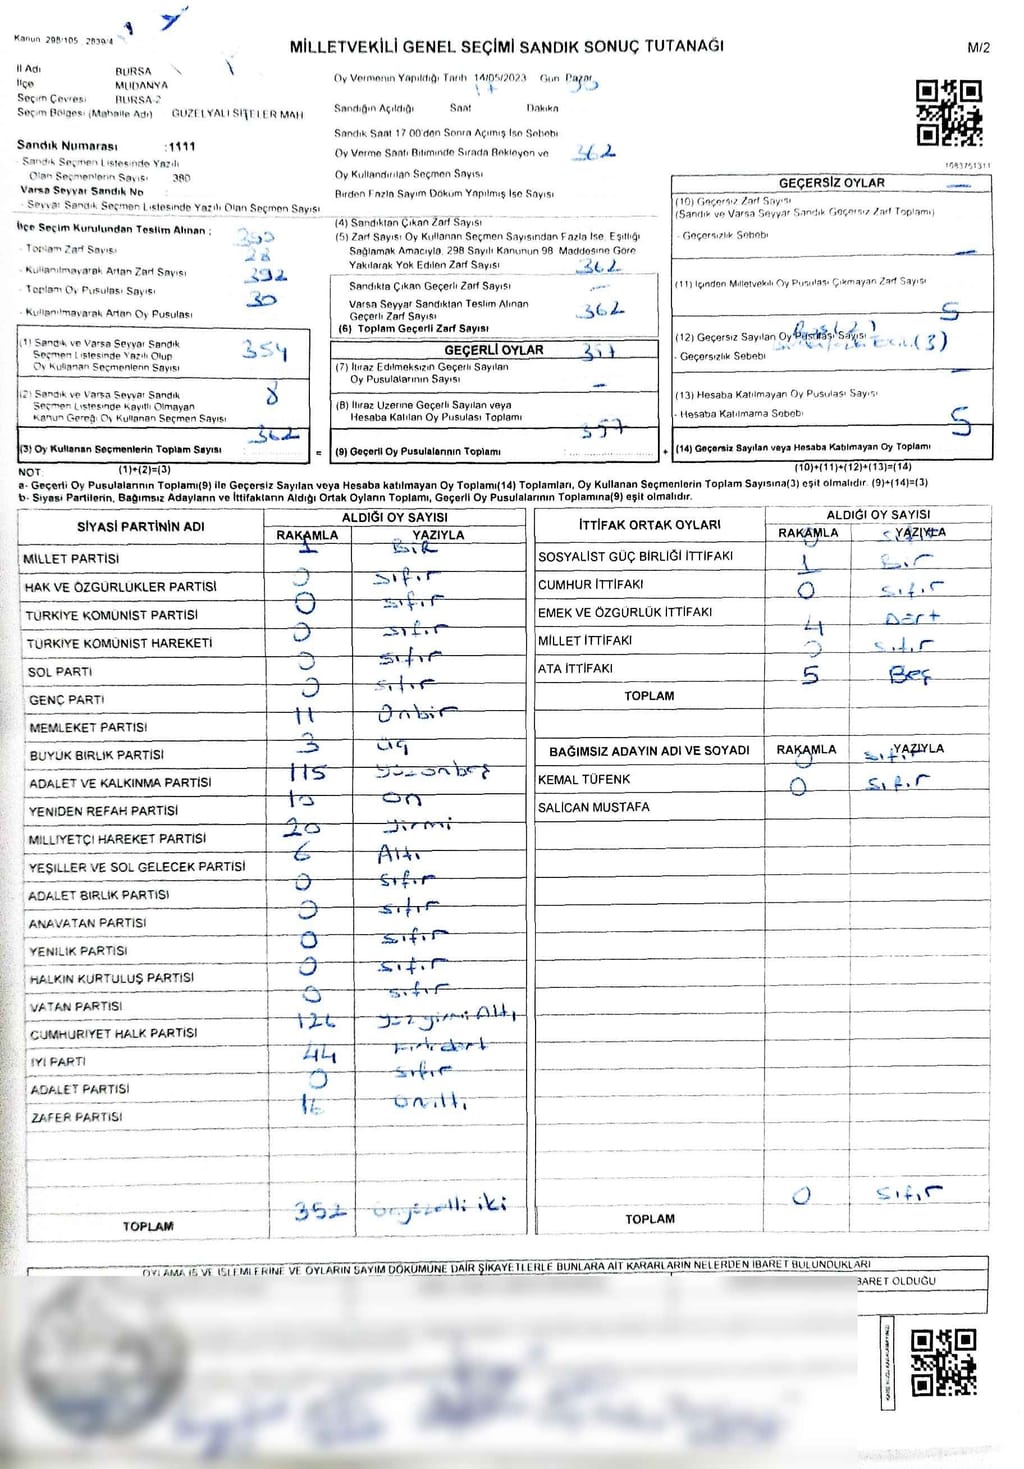 Kanun 298/105 2839/4
MİLLETVEKİLİ GENEL SEÇİMİ SANDIK SONUÇ TUTANAĞI
M/2
İl Adı BURSA
İlçe MUDANYA
Seçim Çevresi BURSA-2
Seçim Bölgesi (Mahalle Adı) GÜZELYALI SİTELER MAH
Sandık Numarası :1111
- Sandık Seçmen Listesinde Yazılı
Olan Seçmenlerin Sayısı 380
Varsa Seyyar Sandık No
- Seyyar Sandık Seçmen Listesinde Yazılı Olan Seçmen Sayısı
Oy Vermenin Yapıldığı Tarih 14/05/2023 Gün Pazar
17
Sandığın Açıldığı Saat Dakika
Sandık Saat 17 00'den Sonra Açımış İse Sebebi
Oy Verme Saati Bitiminde Sırada Bekleyen ve 362
Oy Kullandırılan Seçmen Sayısı
Birden Fazla Sayım Döküm Yapılmış İse Sayısı
1083751311
İlçe Seçim Kurulundan Teslim Alınan :
- Toplam Zarf Sayısı 28
- Kullanılmayarak Artan Zarf Sayısı 392
- Toplam Oy Pusulası Sayısı 30
- Kullanılmayarak Artan Oy Pusulası
(1) Sandık ve Varsa Seyyar Sandık 354
Seçmen Listesinde Yazılı Olup
Oy Kullanan Seçmenlerin Sayısı
(2) Sandık ve Varsa Seyyar Sandık 8
Seçmen Listesinde Kayıtlı Olmayan
Kanun Gereği Oy Kullanan Seçmen Sayısı
362
(3) Oy Kullanan Seçmenlerin Toplam Sayısı =
(1)+(2)=(3)
(4) Sandıktan Çıkan Zarf Sayısı
(5) Zarf Sayısı Oy Kullanan Seçmen Sayısından Fazla İse, Eşitliği
Sağlamak Amacıyla, 298 Sayılı Kanunun 98 Maddesine Göre
Yakılarak Yok Edilen Zarf Sayısı 362
Sandıkta Çıkan Geçerli Zarf Sayısı –
Varsa Seyyar Sandıktan Teslim Alınan 362
Geçerli Zarf Sayısı
(6) Toplam Geçerli Zarf Sayısı
GEÇERLİ OYLAR 357
(7) İtiraz Edilmeksizin Geçerli Sayılan
Oy Pusulalarının Sayısı –
(8) İtiraz Üzerine Geçerli Sayılan veya
Hesaba Katılan Oy Pusulası Toplamı
357
(9) Geçerli Oy Pusulalarının Toplamı +
GEÇERSİZ OYLAR –
(10) Geçersiz Zarf Sayısı
(Sandık ve Varsa Seyyar Sandık Geçersiz Zarf Toplamı)
- Geçersizlik Sebebi
–
(11) İçinden Milletvekili Oy Pusulası Çıkmayan Zarf Sayısı
5
(12) Geçersiz Sayılan Oy Pusulası Sayısı
- Geçersizlik Sebebi (3)
–
(13) Hesaba Katılmayan Oy Pusulası Sayısı
- Hesaba Katılmama Sebebi 5
(14) Geçersiz Sayılan veya Hesaba Katılmayan Oy Toplamı
(10)+(11)+(12)+(13)=(14)
NOT:
a- Geçerli Oy Pusulalarının Toplamı(9) ile Geçersiz Sayılan veya Hesaba katılmayan Oy Toplamı(14) Toplamları, Oy Kullanan Seçmenlerin Toplam Sayısına(3) eşit olmalıdır. (9)+(14)=(3)
b- Siyasi Partilerin, Bağımsız Adayların ve İttifakların Aldığı Ortak Oyların Toplamı, Geçerli Oy Pusulalarının Toplamına(9) eşit olmalıdır.
SİYASİ PARTİNİN ADI ALDIĞI OY SAYISI
RAKAMLA YAZIYLA
1 Bir
MİLLET PARTİSİ
0 Sıfır
HAK VE ÖZGÜRLÜKLER PARTİSİ
0 Sıfır
TÜRKİYE KOMÜNİST PARTİSİ
0 Sıfır
TÜRKİYE KOMÜNİST HAREKETİ
0 Sıfır
SOL PARTİ
0 Sıfır
GENÇ PARTİ
11 Onbir
MEMLEKET PARTİSİ
3 üç
BÜYÜK BİRLİK PARTİSİ
115 yüzonbeş
ADALET VE KALKINMA PARTİSİ
10 on
YENİDEN REFAH PARTİSİ
20 yirmi
MİLLİYETÇİ HAREKET PARTİSİ
6 Altı
YEŞİLLER VE SOL GELECEK PARTİSİ
0 Sıfır
ADALET BİRLİK PARTİSİ
0 Sıfır
ANAVATAN PARTİSİ
0 Sıfır
YENİLİK PARTİSİ
0 Sıfır
HALKIN KURTULUŞ PARTİSİ
0 Sıfır
VATAN PARTİSİ
126 yüzyirmi Altı
CUMHURİYET HALK PARTİSİ
44 kırkdört
İYİ PARTİ
0 Sıfır
ADALET PARTİSİ
16 onaltı
ZAFER PARTİSİ
352 üçyüzelli iki
TOPLAM
İTTİFAK ORTAK OYLARI ALDIĞI OY SAYISI
RAKAMLA YAZIYLA
0 Sıfır
SOSYALİST GÜÇ BİRLİĞİ İTTİFAKI
1 Bir
CUMHUR İTTİFAKI
0 Sıfır
EMEK VE ÖZGÜRLÜK İTTİFAKI
4 Dört
MİLLET İTTİFAKI
0 Sıfır
ATA İTTİFAKI
5 Beş
TOPLAM
BAĞIMSIZ ADAYIN ADI VE SOYADI RAKAMLA YAZIYLA
0 Sıfır
KEMAL TÜFENK
0 Sıfır
SALİCAN MUSTAFA
0 Sıfır
TOPLAM
OYLAMA İŞ VE İŞLEMLERİNE VE OYLARIN SAYIM DÖKÜMÜNE DAİR ŞİKAYETLERLE BUNLARA AİT KARARLARIN NELERDEN İBARET BULUNDUKLARI
BARET OLDUĞU